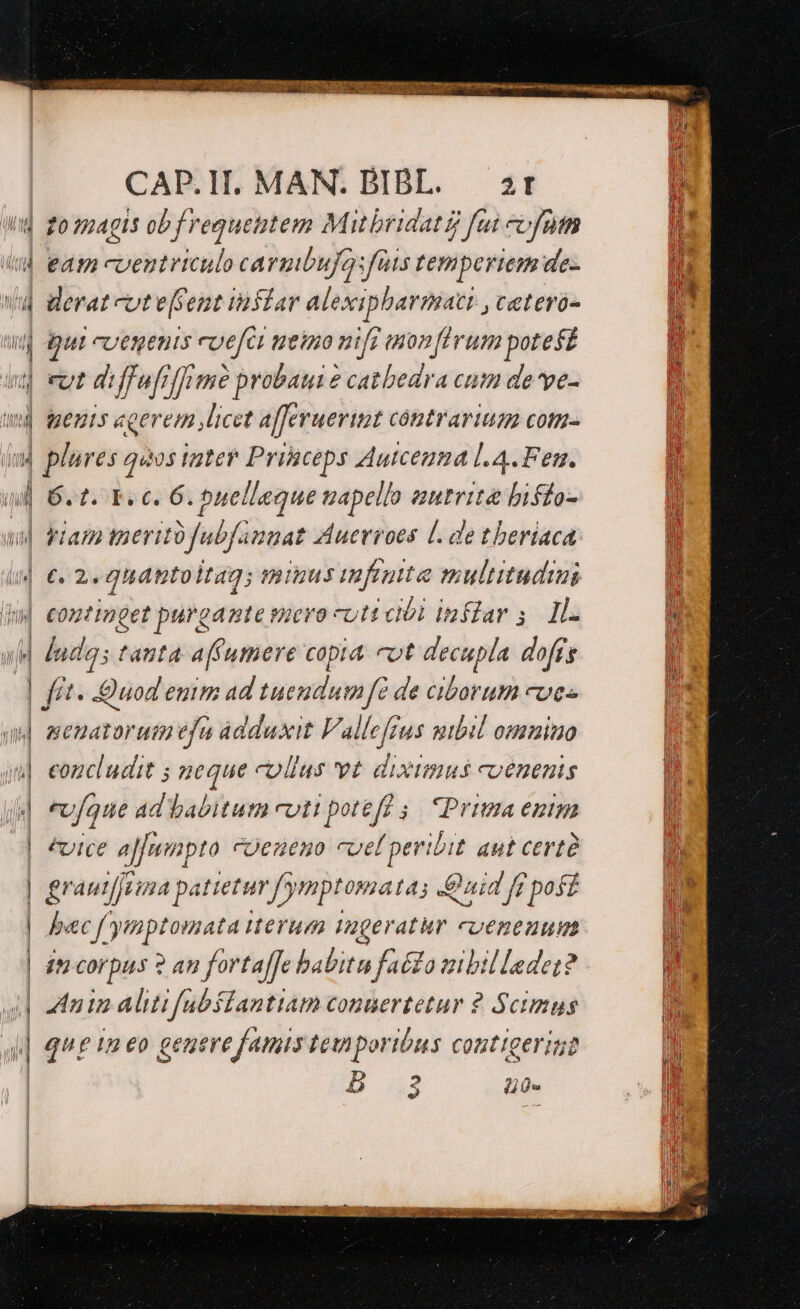 CAP. II. MAN. BIBL. 21
to magis ob frequentem Mithridatij sui vsum
eam ventriculo carnibusq; suis temperiem de-
derat vt essent instar alexipharmaci, cætero-
qui venenis vesci nemo nisi monstrum potest
vt diffusissimè probaui è cathedra cum de ve-
nenis agerem, licet asseruerint contrarium com-
plures quos inter Princeps Auicenna l.4. Fen.
6. t. 1. c. 6. puellæque napello nutritæ histo-
riam meritò subsannat Auerroes l. de theriaca
c. 2. quantoitaq; minus infinitæ multitudini
continget purgante mero vti cibi instar; Il-
ludq; tanta assumere copia vt decupla dosis
sit. Quod enim ad tuendum se de ciborum ve-
nenatorum esu adduxit Vallesius nihil omnino
concludit; neque vllus vt diximus venenis
vsque ad habitum vti potest; Prima enim
vice assumpto veneno vel peribit aut certè
grauissima patietur symptomata; Quid si post
hæc symptomata iterum ingeratur venenum
in corpus? an fortasse habitu facto nihil lædet?
An in aliti substantiam conuertetur? Scimus
quę in eo genere famis temporibus contigerint
B 3 no-